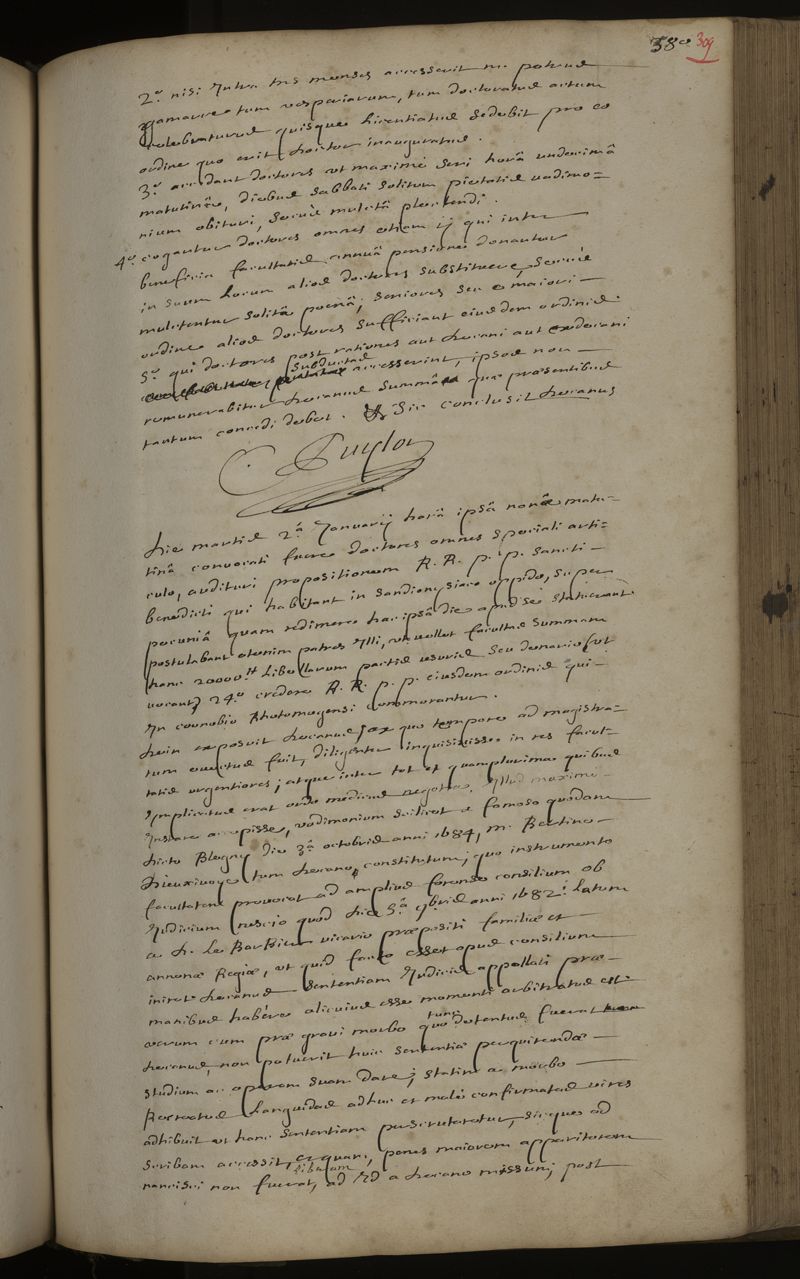 380 309
2.o nisi Intra tres menses accesserit ne patiend
examarre tum vesperiarum, tum doctoratus actum
celebraturus quisque licentiatus sedebit pro eo
ordine quo erit doctor inauguratus.
3.o accedant doctores ut maximè seri horâ undecimâ
matutinâ, diebus sabbati solitum pietatis vadimo=
nium obituri, secùs mulctâ plectendi.
4.o cogantur doctores omnes etiam ij qui inter
beneficia facultatis annuâ pensione donantur
in suum locum alios doctores substituere, secùs
mulctentur solitâ poenâ; seniores seu è maiori
ordine alios doctores sufficiant eiusdem ordinis.
5.o qui doctores post rationes aut decani aut exdecani
subductas accesserint, ipsos non
remunerabitur decanus summâ quae praesentibus
tantum concedi debet. Sic conclusit decanus
C. Puylon
die martis 2.a Januarij horâ ipsâ nonâ matu=
tinâ convocati fuere doctores omnes speciali arti=
culo, audituri propositionem R. R. p. p. sancti
benedicti qui habitant in sandionysiaco oppido, super
pecuniâ quam redimere hac ipsâ die apud se statuerant
postulabant etenim patres Illi, num vellet facultas summam
hanc 20000 lt Libellarum partis usuris seu denario (ut
vocant) 24.o credere R. R. p. p. eiusdem ordinis qui
In coenobio Rhotomagensi commorantur.
dein exposuit decanus se ex quo tempore ad magistra=
tum evectus fuit, diligenter inquisivisse in res facul=
tatis urgentiores; atque inter tot et quamplurima quibus
Implicitus erat ordo medicus negotia, Illud maximè
Instare accepisse, vadimonium scilicet à famoso quodam
dicto Blegny die 3.a octobris anni 1684, m. Bertino
Dieuxivoye tum decano, constitutum; quo instrumento
facultatem provocat ad amplius forense consilium ob
Judicium nescio quod die 5.a 9bris anni 1682.i Latum
a d. Le Barbier vicario praepositi familiae et
annonae Regiae, ut quid facto esset opus consilium
iniret decanus sententiam Judicis appellati prae
manibus habere alicuius esse momenti arbitratus est
verum cum prae gravi morbo quo tunc detentus fuerat
decanus, non potuerit huic sententiae perquirendae
studium ac operam suam dare; statim a morbo
Recreatus Languidas adhuc et malè confirmatas vires
adhibuit ut hanc sententiam perscrutaretur, sicque ad
scribam accessit, penes maiorem apparitorem
nancisci non fuerat, ad Id a decano missum, post